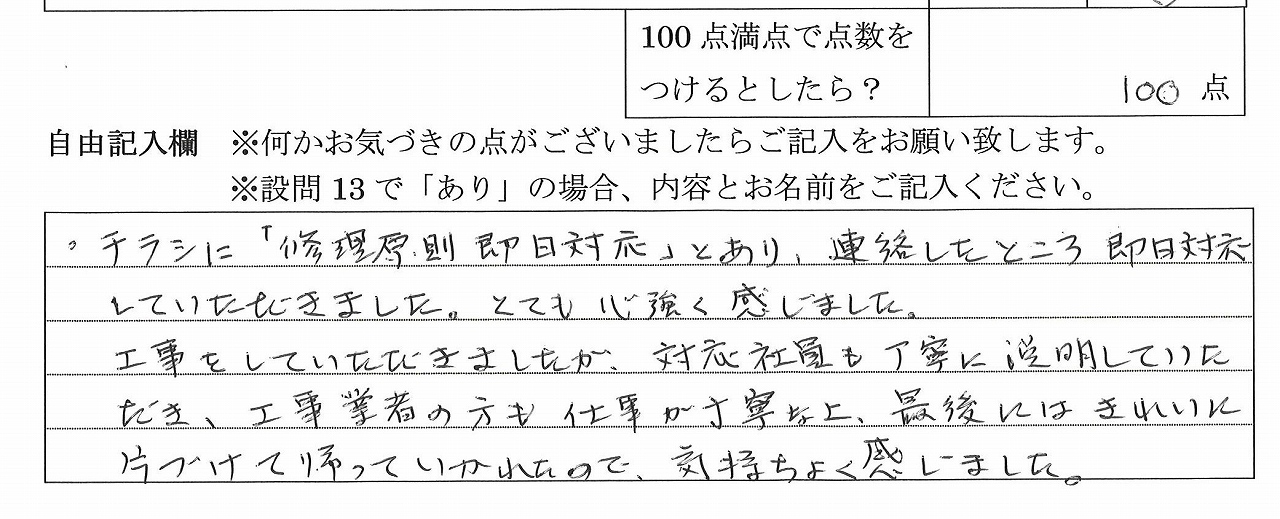 100点満点で点数を
つけるとしたら？
100 点
自由記入欄 ※何かお気づきの点がございましたらご記入をお願い致します。
※設問13で「あり」の場合、内容とお名前をご記入ください。
。チラシに「修理原則即日対応」とあり、連絡したところ即日対応
していただきました。とても心強く感じました。
工事をしていただきましたが、対応社員も丁寧に説明していた
だき、工事業者の方も仕事が丁寧な上、最後にはきれいに
片づけて帰っていかれたので、気持ちよく感じました。